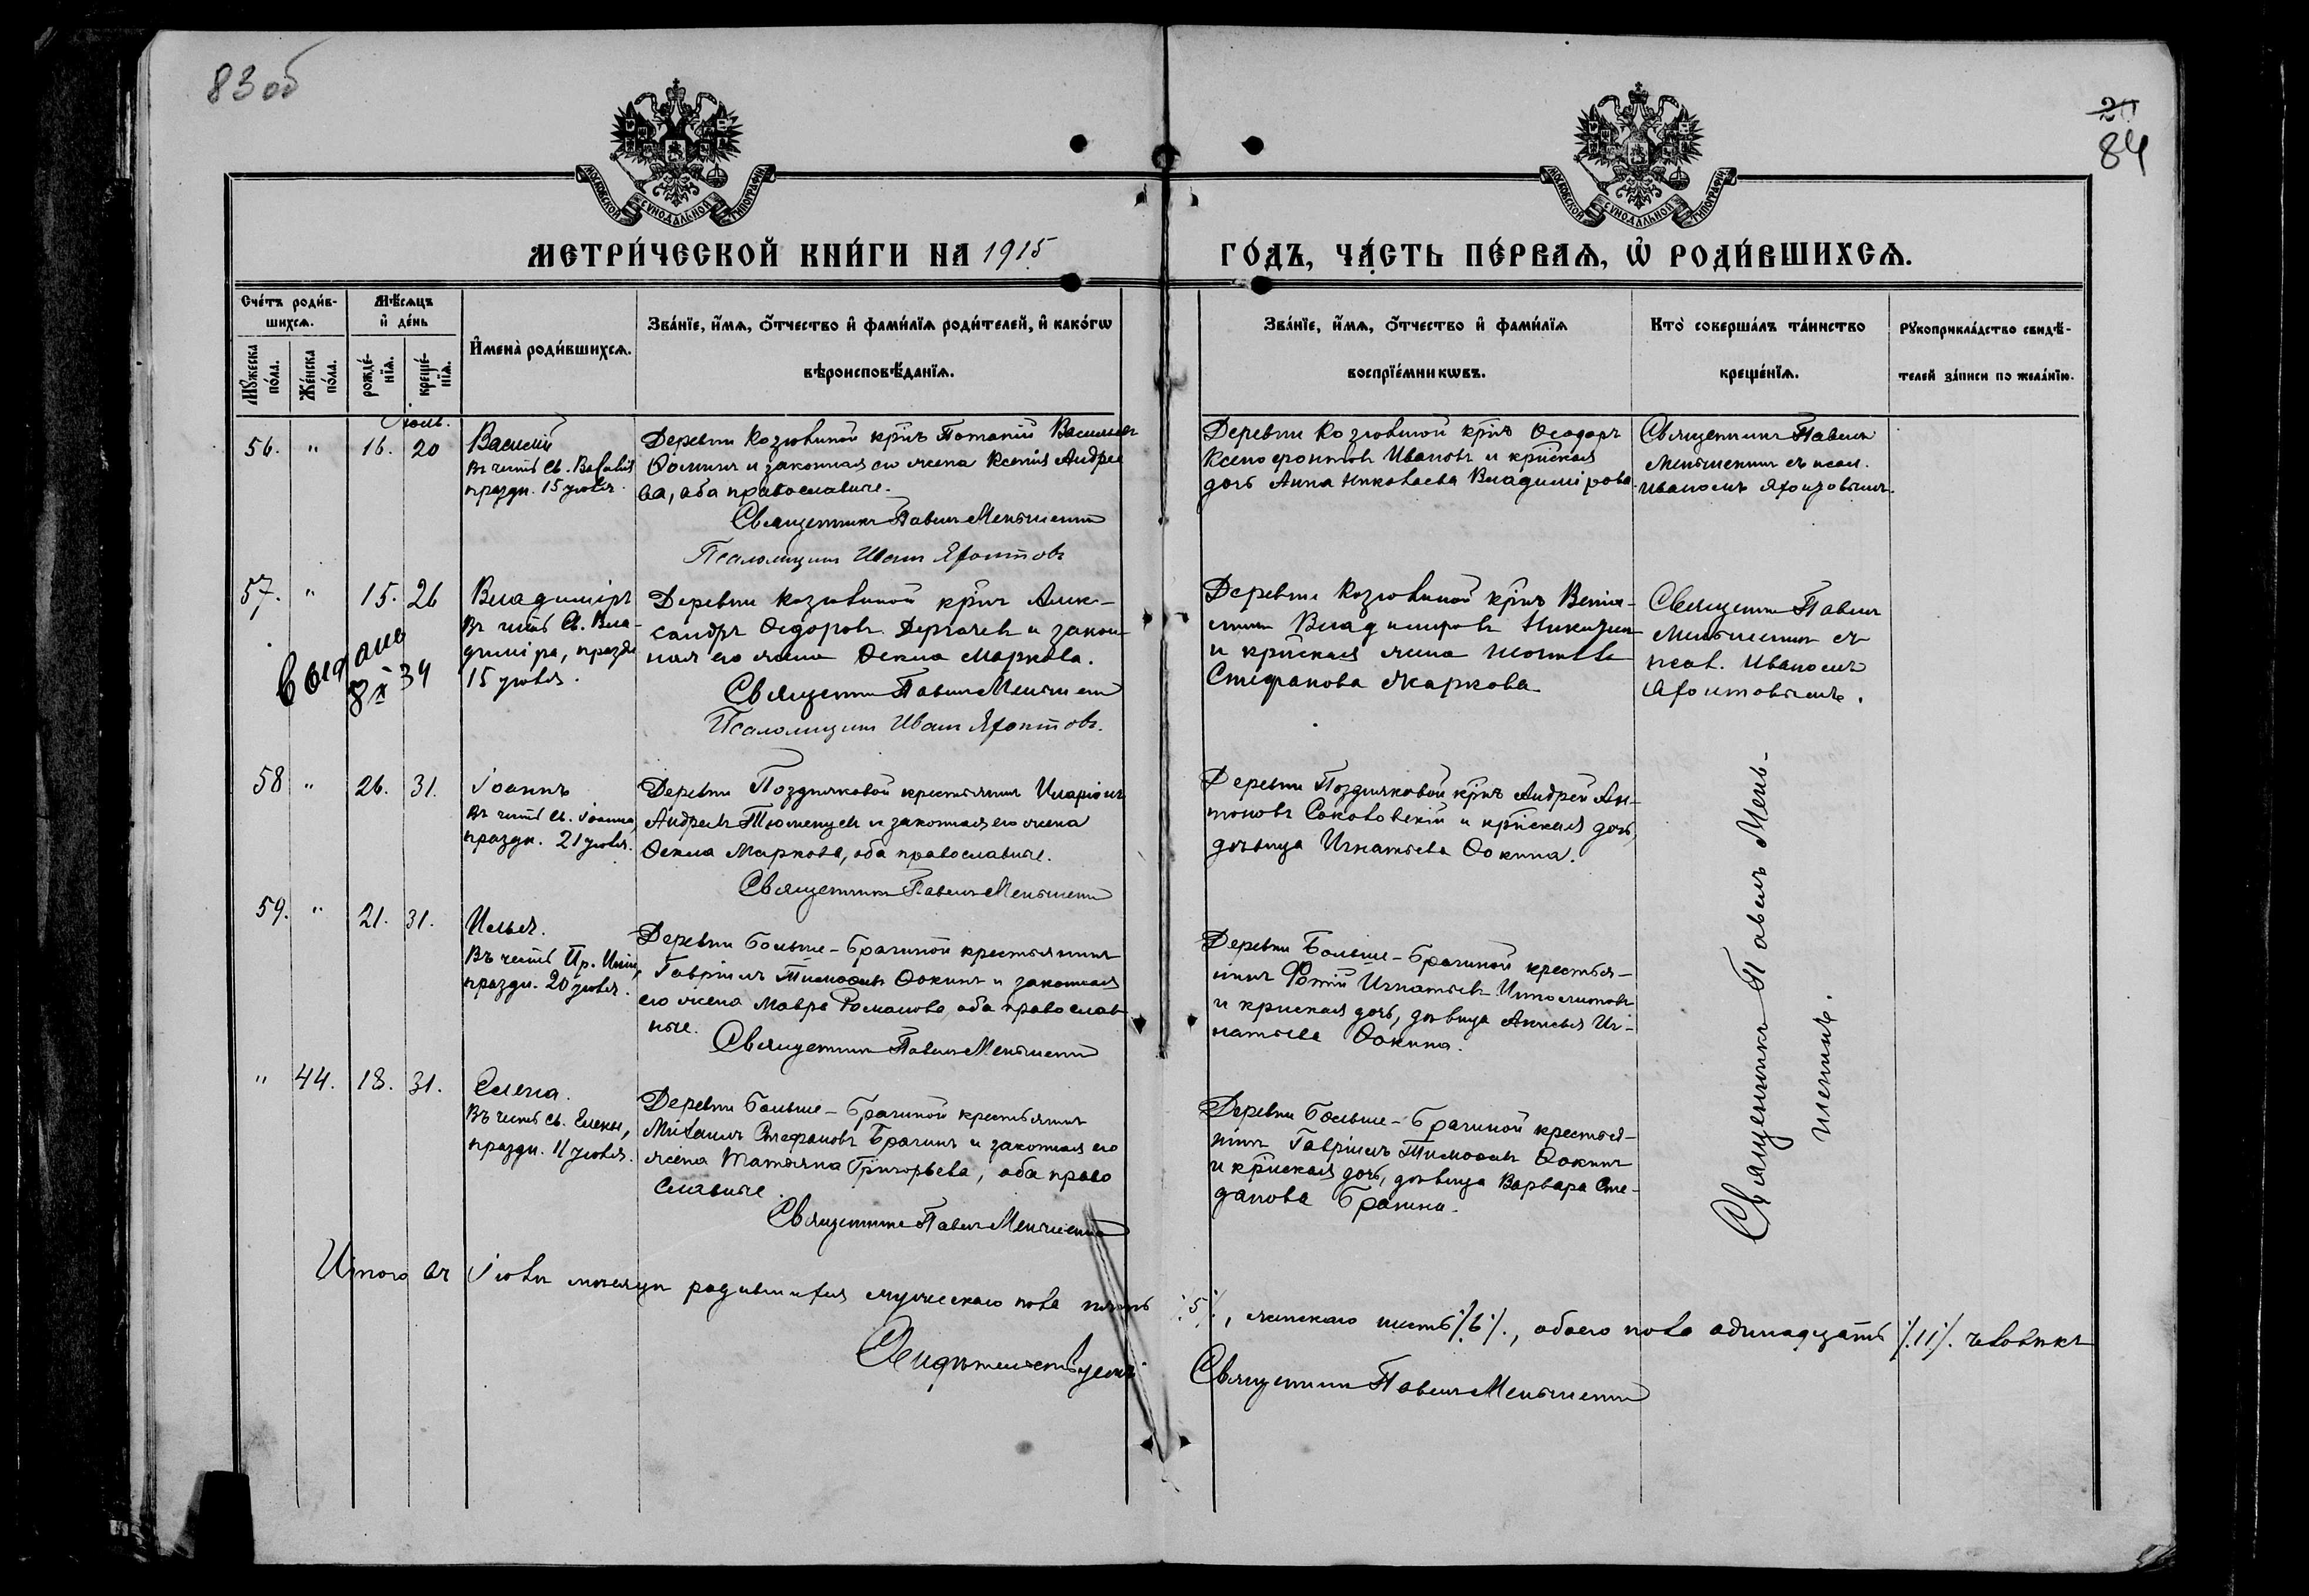 83 об
20
84
МОСКОВСКОЙ СУНОДАЛЬНОЙ ТИПОГРАФІИ
МОСКОВСКОЙ СУНОДАЛЬНОЙ ТИПОГРАФІИ
МЕТРИ́ЧЕСКОЙ КНИ́ГИ НА 1915
ГО́ДЪ, ЧА́СТЬ ПЕ́РВАѦ, Ѡ҆ РОДИ́ВШИХСѦ.
Сче́тъ роди́в-
шихсѧ.
Мꙋ́жеска по́ла.
Же́нска по́ла.
Мѣ́сѧцъ
и҆ де́нь
рожде́-
нїѧ.
креще́-
нїѧ.
И҆мена̀ роди́вшихсѧ.
Зва́нїе, и҆́мѧ, ѻ҆́тчество и҆ фами́лїѧ роди́телей, и҆ како́гѡ
вѣроисповѣ́данїѧ.
Зва́нїе, и҆́мѧ, ѻ҆́тчество и҆ фами́лїѧ
воспрїе́мникѡвъ.
Кто̀ соверша́лъ та́инство
креще́нїѧ.
Рꙋкоприкла́дство свидѣ́-
телей за́писи по жела́нїю.
Іюль.
56. " 16. 20
Василій
Въ честь св.
праздн. 15 іюля.
Деревни Козювиной кр‑нъ Потапій Васильевъ
Ѳоминъ и законная его жена Ксенія Андрее
ва, оба православные.
Священникъ Павелъ Меньшенинъ
Псаломщикъ Иванъ Яхонтовъ
Деревни Козювиной кр‑нъ Ѳеодоръ
Ксенофонтовъ Ивановъ и кр‑нская
дочь Анна Николаева Владимірова.
Священникъ Павелъ
Меньшенинъ съ псал.
Иваномъ Яхонтовымъ.
57. " 15. 26
Владиміръ
Въ честь Св. Вла-
диміра, праздн.
15 іюля.
выдано
8 X 34
Деревни Козювиной кр‑нъ Алек-
сандръ Ѳедоровъ Дергачевъ и закон-
ная его жена Ѳекла Маркова.
Священникъ Павелъ Меньшенинъ
Псаломщикъ Иванъ Яхонтовъ.
Деревни Козювиной кр‑нъ Веніа-
минъ Владиміровъ
и кр‑нская жена
Стефанова Жаркова.
Священникъ Павелъ
Меньшенинъ съ
псал. Иваномъ
Яхонтовымъ.
58 " 26. 31.
Іоаннъ
Въ честь св. Іоанна,
праздн. 21 іюля.
Деревни Поздняковой крестьянинъ Иларіонъ
Андреевъ Тюменцевъ и законная его жена
Ѳекла Маркова, оба православные.
Священникъ Павелъ Меньшенинъ
Деревни Поздняковой кр‑нъ Андрей Ан-
тоновъ Соколовскій и кр‑нская дочь,
дѣвица Игнатьева Ѳокина.
59. " 21. 31.
Илья.
Въ честь Пр. Иліи,
праздн. 20 іюля.
Деревни Больше-Брагиной крестьянинъ
Гавріилъ Тимоѳеевъ Ѳокинъ и законная
его жена Мавра Романова, оба православ
ные.
Священникъ Павелъ Меньшенинъ
Деревни Больше-Брагиной крестья-
нинъ Фотій Игнатьевъ Ипполитовъ
и кр‑нская дочь, дѣвица Анисья Иг-
натьева Ѳокина.
Священникъ Павелъ Мень-
шенинъ.
" 44. 18. 31.
Елена.
Въ честь св. Елены,
праздн. 11 іюля.
Деревни Больше-Брагиной крестьянинъ
Михаилъ Стефановъ Брагинъ и законная его
жена Татьяна Григорьева, оба право
славные.
Священникъ Павелъ Меньшенинъ
Деревни Больше-Брагиной крестья-
нинъ Гавріилъ Тимоѳеевъ Ѳокинъ
и кр‑нская дочь, дѣвица Варвара
Брагина.
Итого въ Іюлѣ мѣсяцѣ родившихся мужескаго пола пять /5/, женскаго шесть /6/., обоего пола одинадцать /.11/. человѣкъ
Свидѣтельствуемъ: Священникъ Павелъ Меньшенинъ